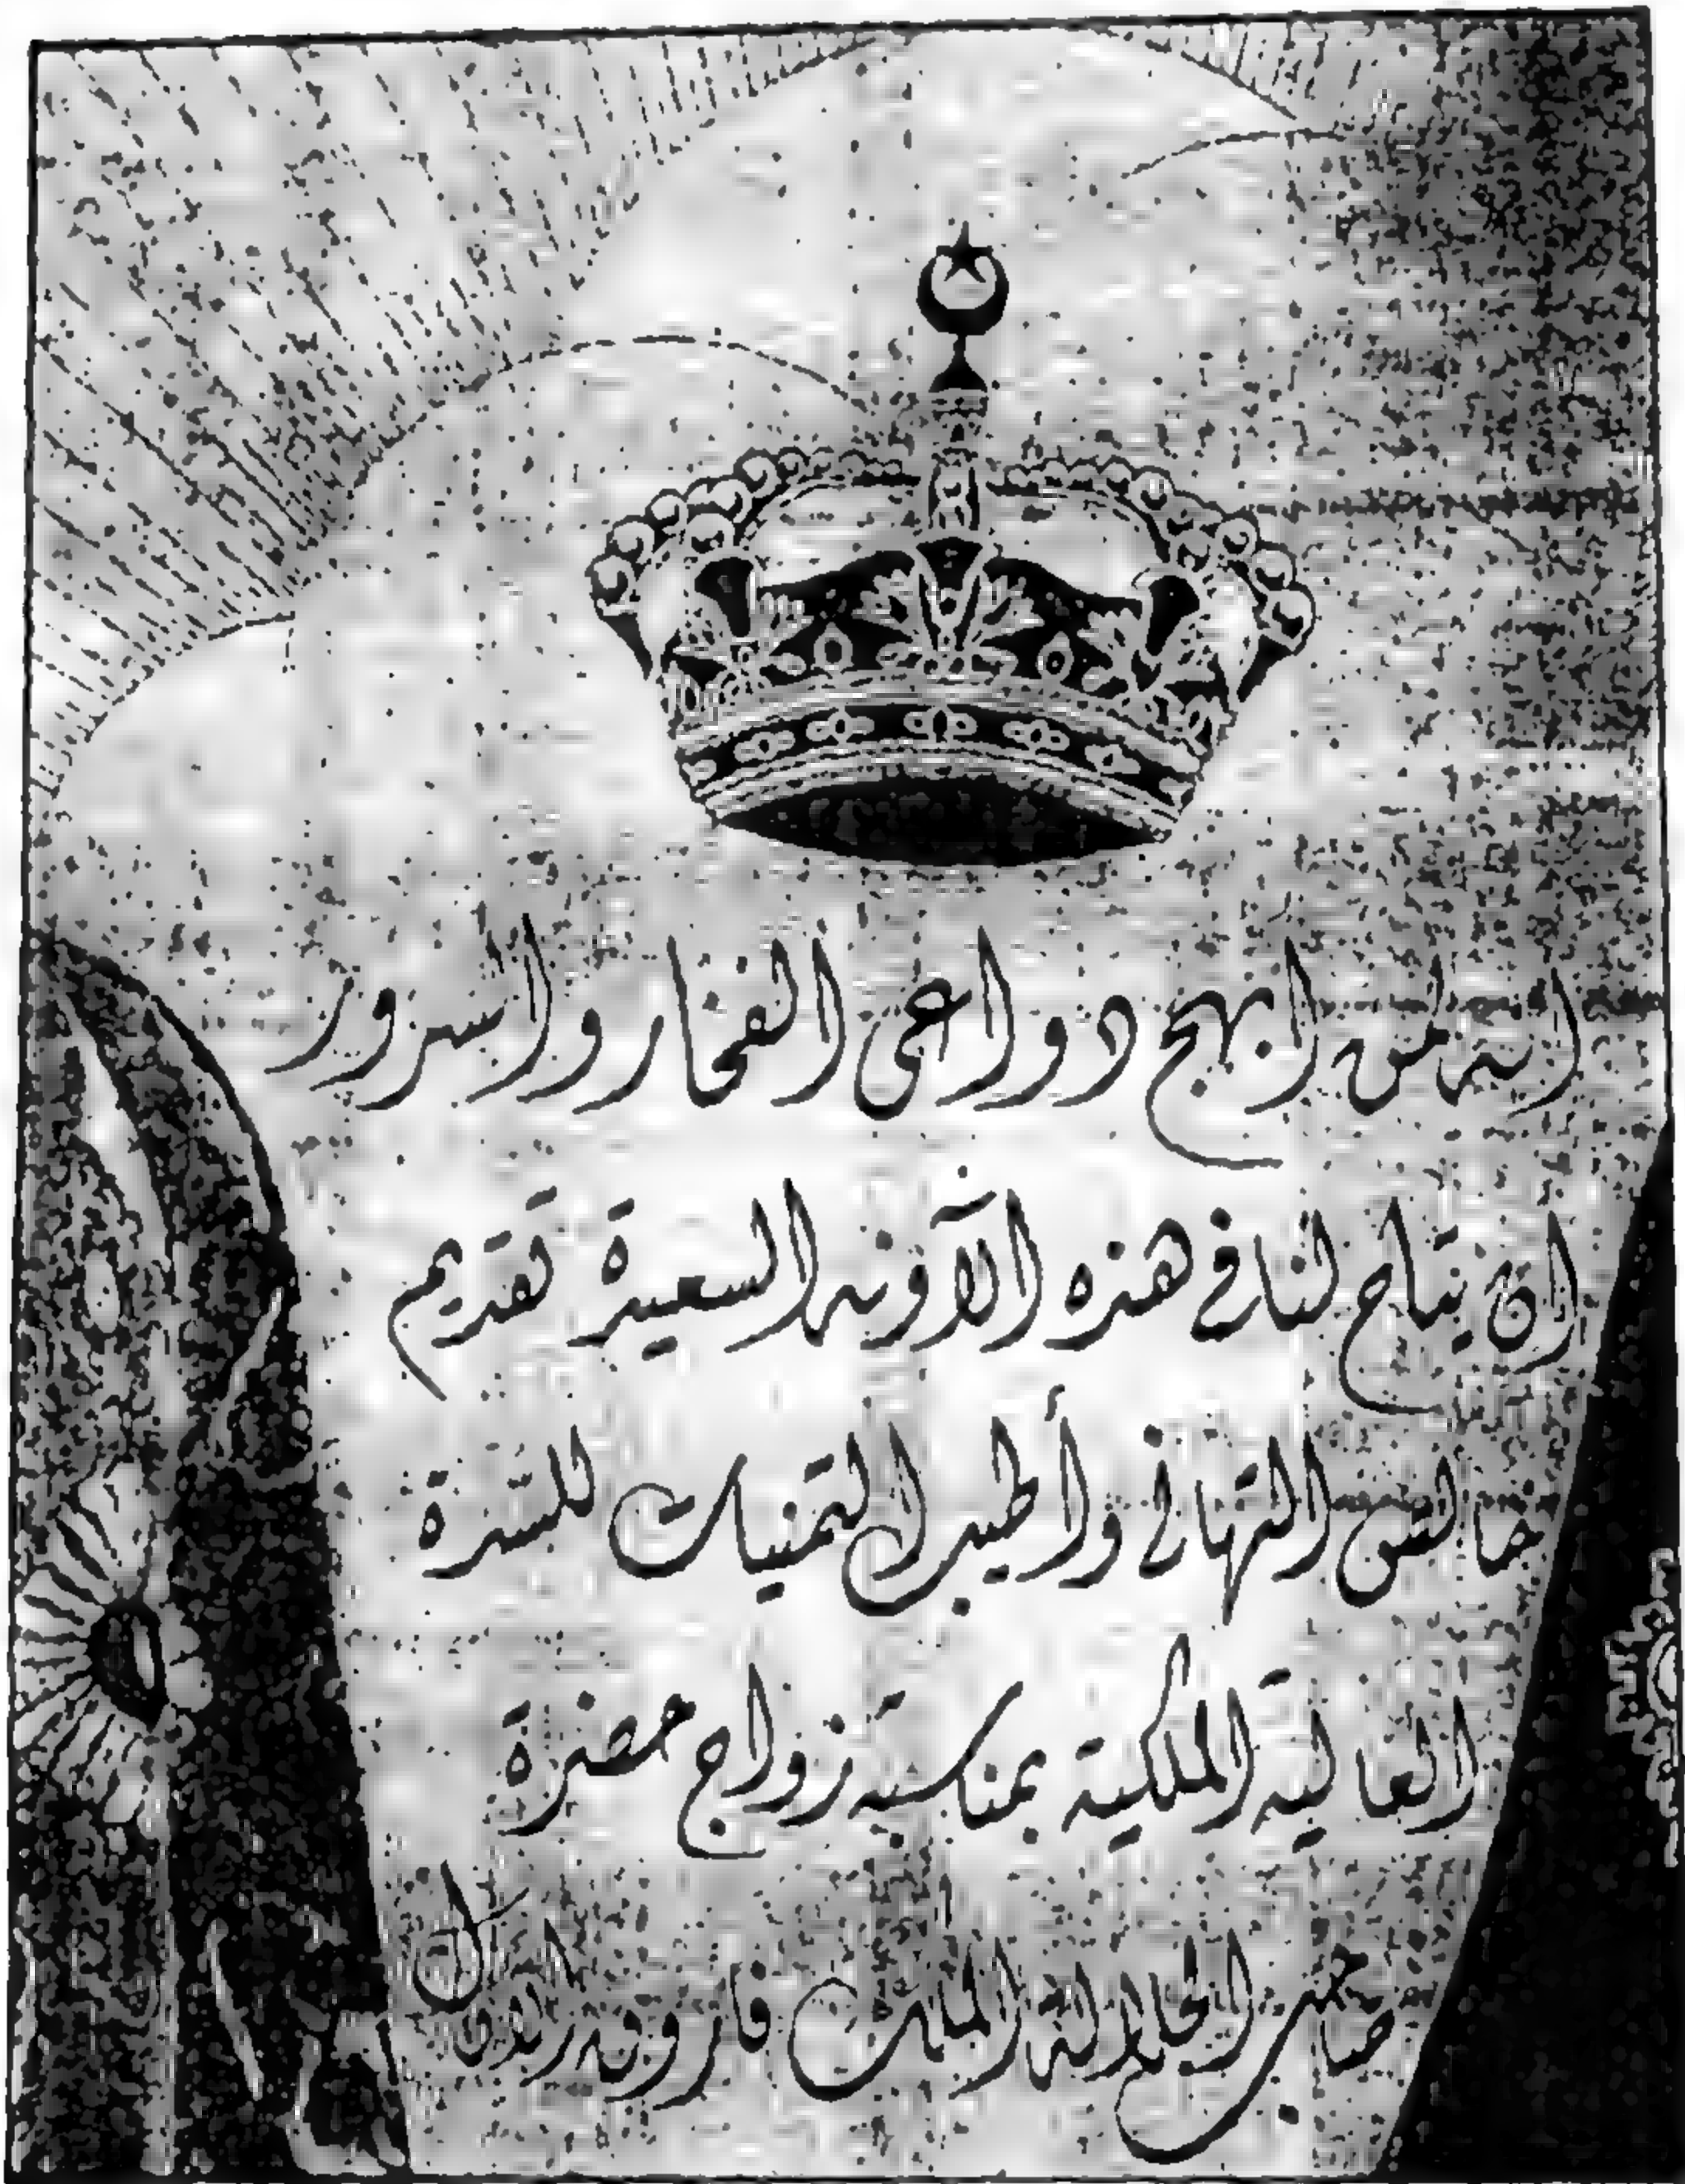 انه لمن ابهج دواعى الفخار والسرور
ان يتاح لنا فى هذه الآونه السعيدة تقديم
خالص التهانى وأطيب التمنيات للسدة
العاليه الملكية بمناسبه زواج حضرة
صاحب الجلالة الملك فاروق الاول